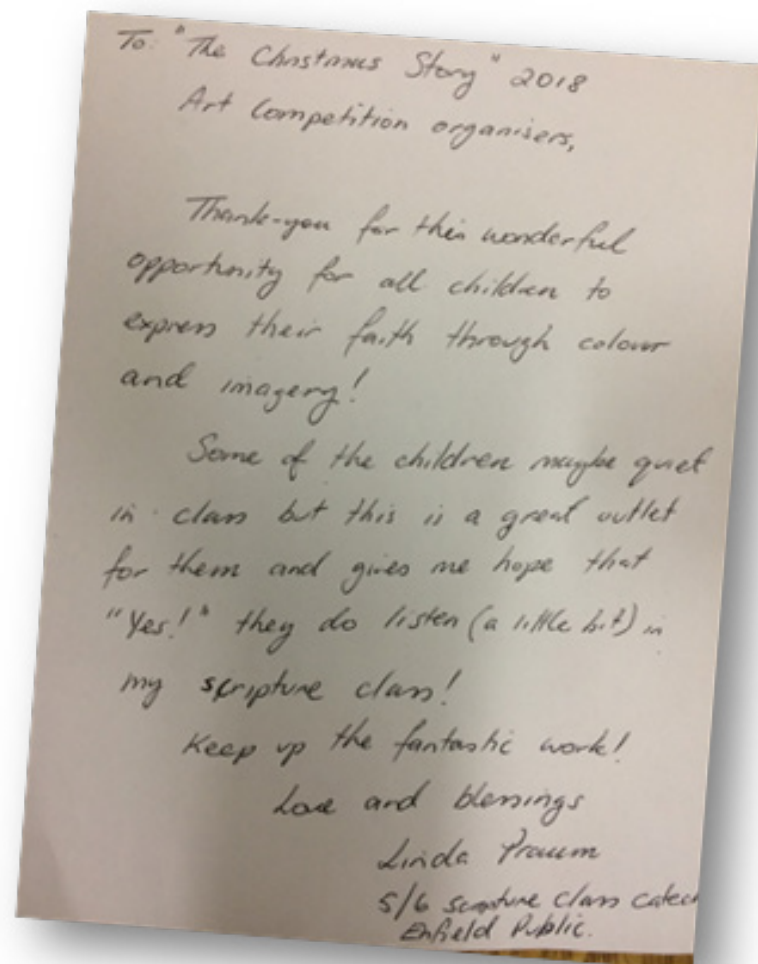 To: "The Christmas Story" 2018
Art Competition organisers,
Thank-you for this wonderful
opportunity for all children to
express their faith through colour
and imagery!
Some of the children maybe quiet
in class but this is a great outlet
for them and gives me hope that
"Yes!" they do listen (a little bit) in
my scripture class!
Keep up the fantastic work!
Love and blessings
Linda
5/6 scripture class catech
Enfield Public.